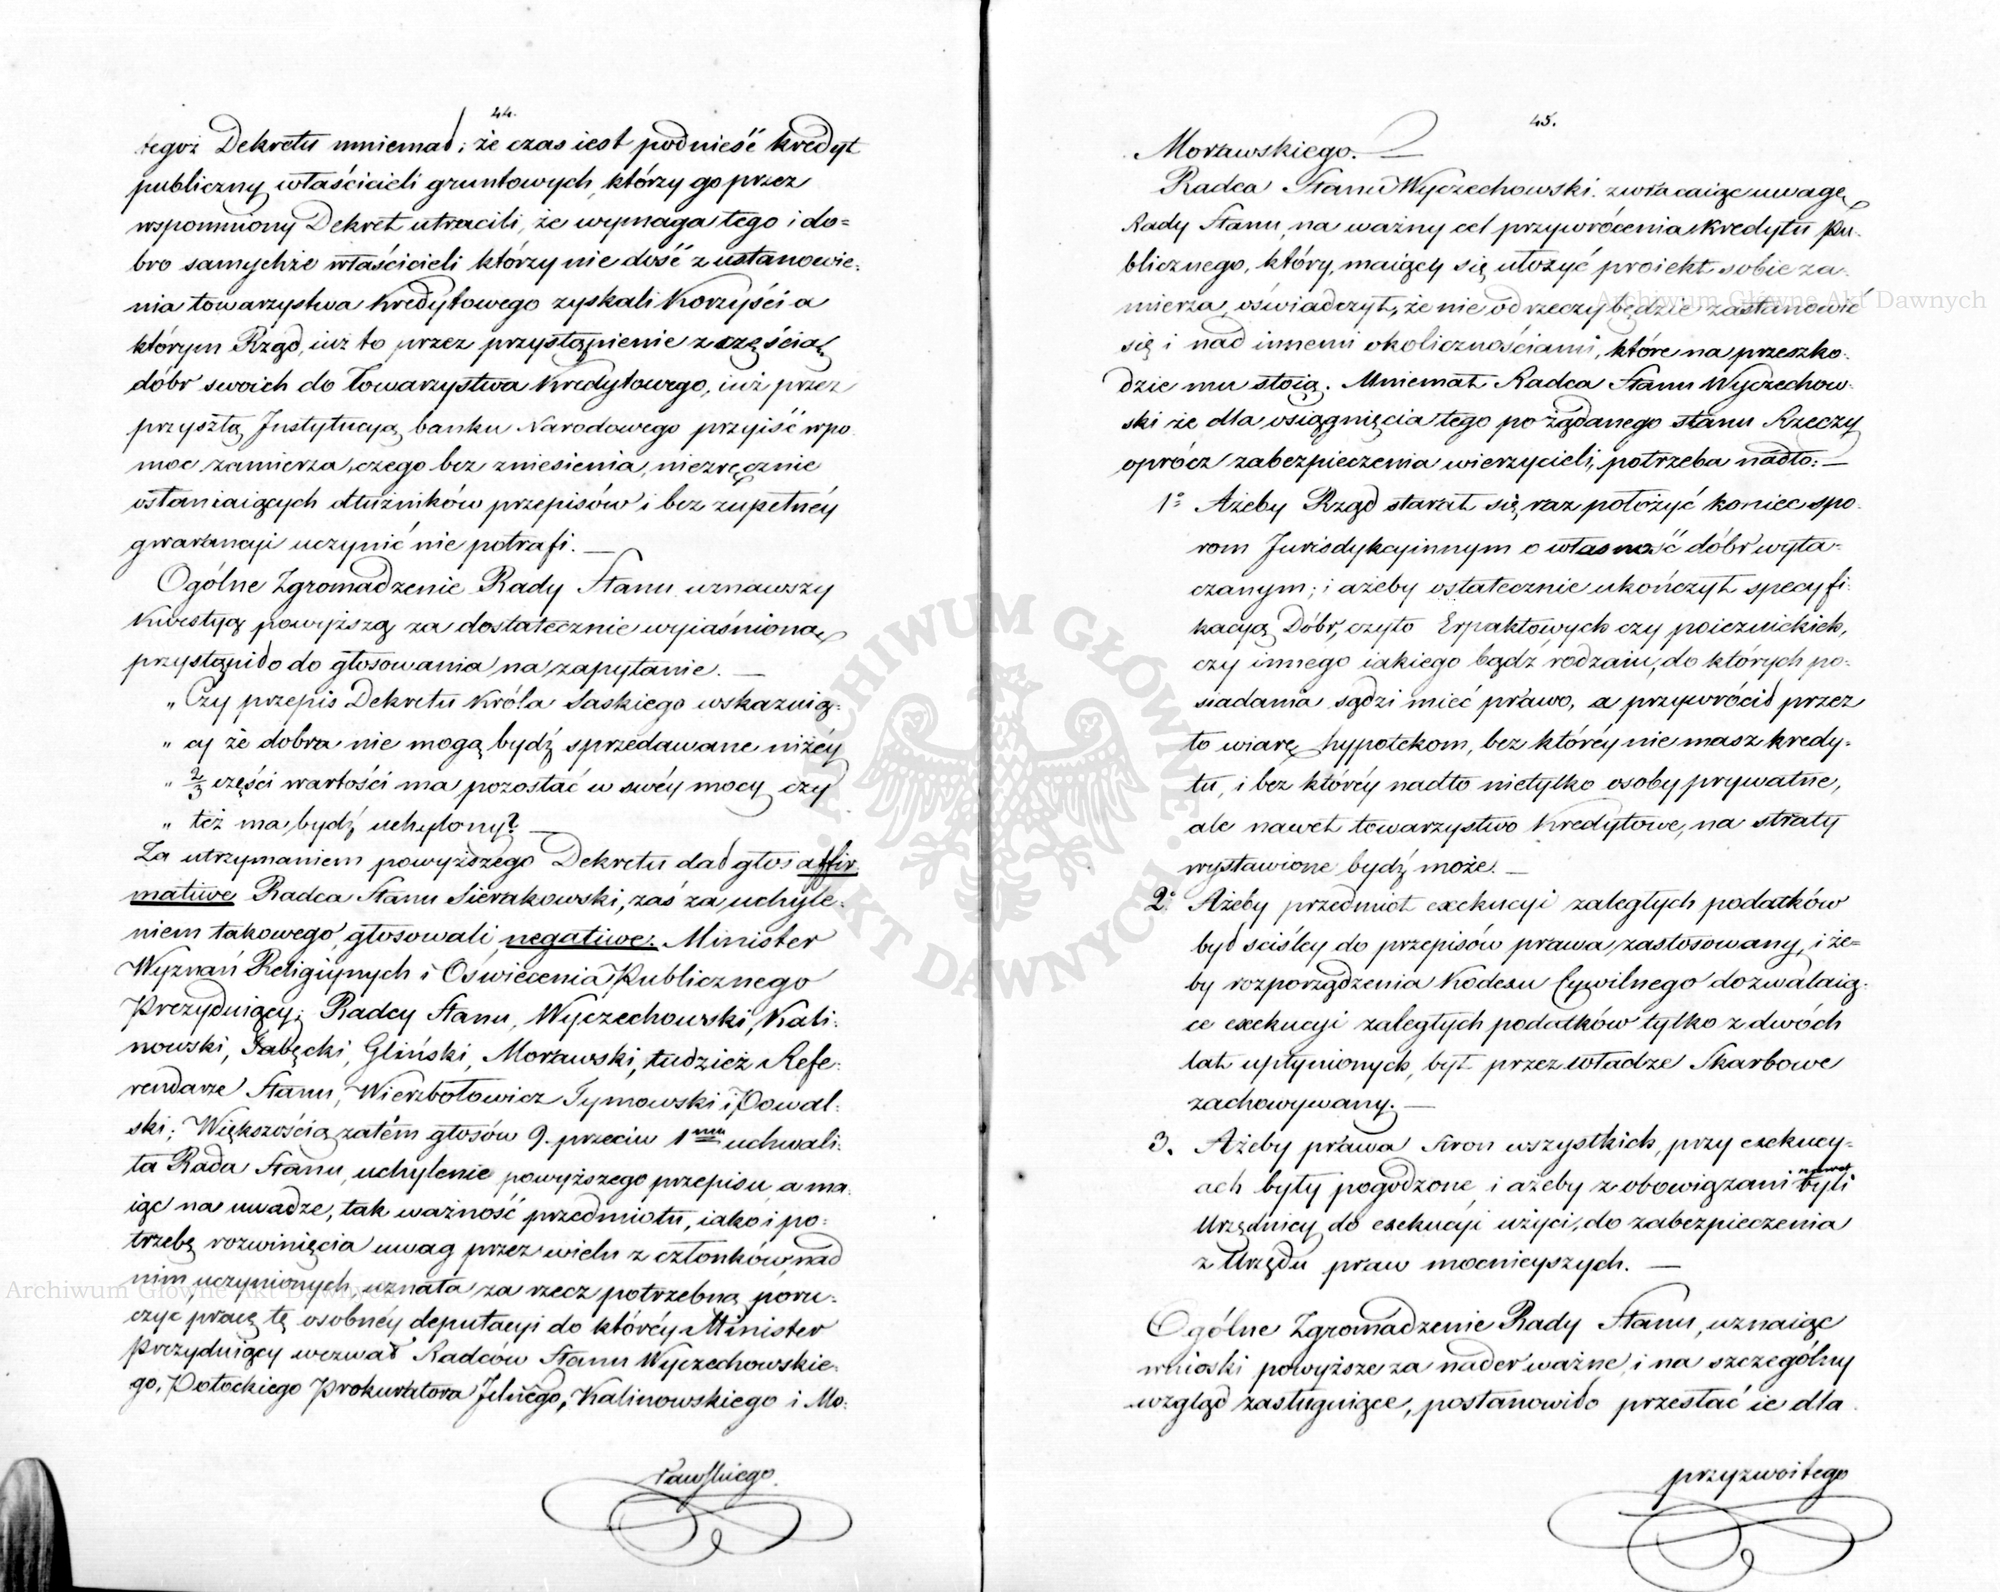 44.
tegoż Dekretu mniemał; że czas iest podnieść kredyt
publiczny właścicieli gruntowych, którzy go przez
wspomniony Dekret utracili, że wymaga tego i do=
bro samychże właścicieli którzy nie dość z ustanowie=
nia towarzystwa Kredytowego zyskali Korzyści a
którym Rząd, iuż to przez przystąpienie z częścią
dóbr swoich do Towarzystwa Kredytowego, iuż przez
przyszłą Instytucyą banku Narodowego przyiść w po
moc zamierza, czego bez zniesienia, niezręcznie
osłaniaiących dłużników przepisów i bez zupełnéy
gwarancyi uczynić nie potrafi. —
Ogólne Zgromadzenie Rady Stanu uznawszy
Kwestyą powyższą za dostatecznie wyiaśnioną,
przystąpiło do głosowania na zapytanie. —
„ Czy przepis Dekretu Króla Saskiego wskazuią=
„ cy że dobra nie mogą bydź sprzedawane niżéy
„ 2/3 części wartości ma pozostać w swéy mocy czy
„ też ma bydź uchylony? —
Za utrzymaniem powyższego Dekretu dał głos affir=
mative Radca Stanu Sierakowski, zaś za uchyle=
niem takowego, głosowali, negative. Minister
Wyznań Religiynych i Oświecenia Publicznego
Prezyduiący; Radcy Stanu, Wyczechowski, Kali=
nowski, Gliński, Morawski, tudzież Refe=
rendarze Stanu, Wierzbołowicz Tymowski i Kowal=
ski; Większością zatém głosów 9. przeciw 1nmu uchwali=
ła Rada Stanu, uchylenie powyższego przepisu, a ma=
iąc na uwadze, tak ważność przedmiotu, iako i po=
trzebę rozwinięcia uwag przez wielu z członków, nad
nim, uczynionych, uznała za rzecz potrzebną, poru=
czyć pracę tę osobnéy deputacyi do któréy Minister
Prezyduiący wezwał Radców Stanu Wyczechowskie=
go, Potockiego Prokuratora Jelnego, Kalinowskiego i Mo=
rawskiego
45.
Morawskiego. —
Radca Stanu Wyczechowski. zwracaiąc uwagę
Rady Stanu, na ważny cel przywrócenia kredytu pu=
blicznego, który, maiący się ułożyć proiekt sobie za=
mierza, oświadczył, że nie od rzeczy będzie zastanowić
się i nad innemi okolicznościami, które na przeszko=
dzie mu stoią. Mniemał Radca Stanu Wyczechow=
ski że dla osiągnięcia tego pożądanego stanu Rzeczy
oprócz zabezpieczenia wierzycieli, potrzeba nadto: —
1° Ażeby Rząd starał się raz położyć koniec spo=
rom Jurisdykcyinnym o własność dóbr wyta=
czanym; i ażeby ostatecznie ukończył specyfi=
kacyą Dóbr, czyto Erpaktowych czy poiezuickich,
czy innego iakiego bądź rodzaiu, do których po=
siadania sądzi mieć prawo, a przywrócił przez
to wiarę hypotekom, bez któréy nie masz kredy=
tu, i bez któréy nadto nietylko osoby prywatne,
ale nawet towarzystwo Kredytowe, na straty
wystawione bydź może. —
2° Ażeby przedmiot exekucyi zaległych podatków
był ściśley do przepisów prawa zastosowany, i że=
by rozporządzenia Kodexu Cywilnego dozwalaią=
ce exekucyi zaległych podatków tylko z dwóch
lat upłynionych, był przez władze Skarbowe
zachowywany. —
3. Ażeby prawa stron wszystkich, przy exekucy=
ach były pogodzone, i ażeby zobowiązani nawet byli
Urzędnicy do exekucyi użyci, do zabezpieczenia
z Urzędu praw mocnieyszych. —
Ogólne Zgromadzenie Rady Stanu, uznaiąc
wnioski powyższe za nader ważne, i na szczególny
wzgląd zasługuiące, postanowiło przesłać ie dla
przyzwoitego
ARCHIWUM GŁÓWNE AKT DAWNYCH
Archiwum Główne Akt Dawnych
Archiwum Główne Akt Dawnych